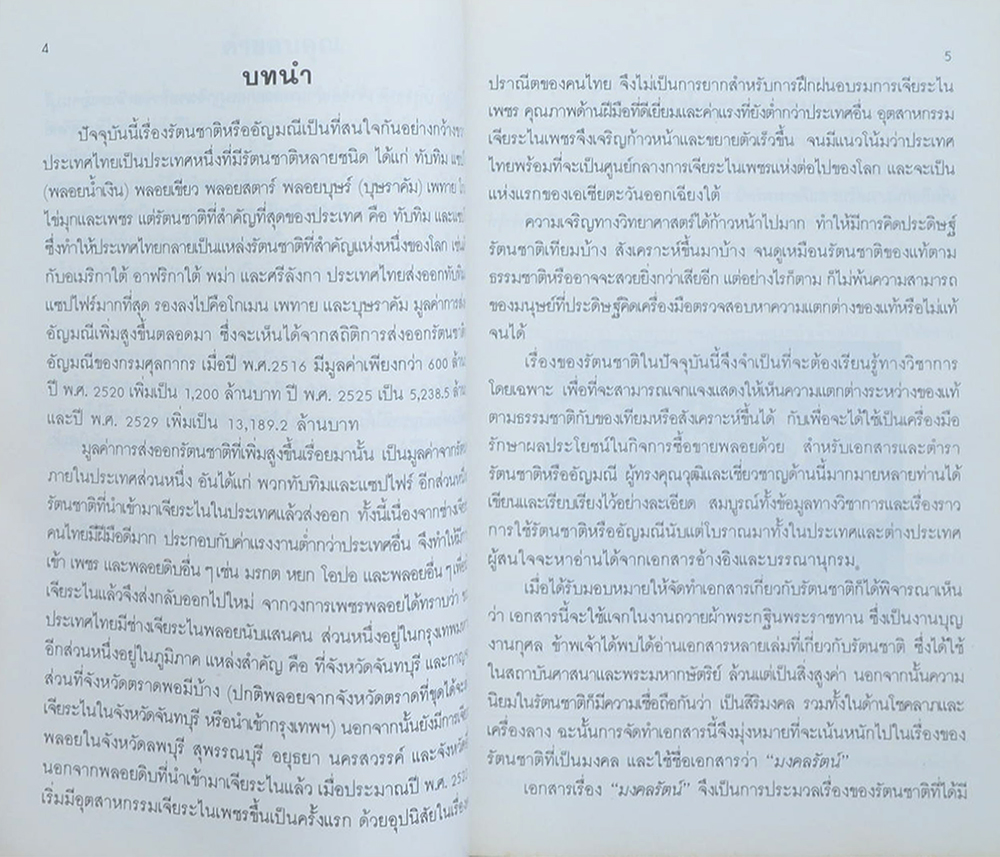 4
บทนำ
ปัจจุบันนี้เรื่องรัตนชาติหรืออัญมณีเป็นที่สนใจกันอย่างกว้าง
ประเทศไทยเป็นประเทศหนึ่งที่มีรัตนชาติหลายชนิด ได้แก่ ทับทิม
(พลอยน้ำเงิน) พลอยเขียว พลอยสตาร์ พลอยบุษร์ (บุษราคัม) เพทาย
ไข่มุกและเพชร แต่รัตนชาติที่สำคัญที่สุดของประเทศ คือ ทับทิม
ซึ่งทำให้ประเทศไทยกลายเป็นแหล่งรัตนชาติที่สำคัญแห่งหนึ่งของโลก
กับอเมริกาใต้ อาฟริกาใต้ พม่า และศรีลังกา ประเทศไทยส่งออก
แซปไฟร์มากที่สุด รองลงไปคือโกเมน เพทาย และบุษราคัม มูลค่าการ
อัญมณีเพิ่มสูงขึ้นตลอดมา ซึ่งจะเห็นได้จากสถิติการส่งออก
อัญมณีของกรมศุลกากร เมื่อปี พ.ศ.2516 มีมูลค่าเพียงกว่า 600
ปี พ.ศ. 2520 เพิ่มเป็น 1,200 ล้านบาท ปี พ.ศ. 2525 เป็น 5,238.5
และปี พ.ศ. 2529 เพิ่มเป็น 13,189.2 ล้านบาท
มูลค่าการส่งออกรัตนชาติที่เพิ่มสูงขึ้นเรื่อยมานั้น เป็นมูลค่าจาก
ภายในประเทศส่วนหนึ่ง อันได้แก่ พวกทับทิมและแซปไฟร์
รัตนชาติที่นำเข้ามาเจียระไนในประเทศแล้วส่งออก ทั้งนี้เนื่องจากช่าง
คนไทยมีฝีมือดีมาก ประกอบกับค่าแรงงานต่ำกว่าประเทศอื่น จึงทำให้
เข้า เพชร และพลอยดิบอื่น ๆ เช่น มรกต หยก โอปอ และพลอยอื่น ๆ
เจียระไนแล้วจึงส่งกลับออกไปใหม่ จากวงการเพชรพลอยได้ทราบว่า
ประเทศไทยมีช่างเจียระไนพลอยนับแสนคน ส่วนหนึ่งอยู่ใน
อีกส่วนหนึ่งอยู่ในภูมิภาค แหล่งสำคัญ คือ ที่จังหวัดจันทบุรี
ส่วนที่จังหวัดตราดพอมีบ้าง (ปกติพลอยจากจังหวัดตราดที่ขุดได้
เจียระไนในจังหวัดจันทบุรี หรือนำเข้ากรุงเทพฯ) นอกจากนั้นยังมี
พลอยในจังหวัดลพบุรี สุพรรณบุรี อยุธยา นครสวรรค์
นอกจากพลอยดิบที่นำเข้ามาเจียระไนแล้ว เมื่อประมาณปี พ.ศ.
เริ่มมีอุตสาหกรรมเจียระไนเพชรขึ้นเป็นครั้งแรก ด้วยอุปนิสัย
5
ปราณีตของคนไทย จึงไม่เป็นการยากสำหรับการฝึกฝนอบรมการเจียระไน
เพชร คุณภาพด้านฝีมือที่ดีเยี่ยมและค่าแรงที่ยังต่ำกว่าประเทศอื่น อุตสาหกรรม
เจียระไนเพชรจึงเจริญก้าวหน้าและขยายตัวเร็วขึ้น จนมีแนวโน้มว่าประเทศ
ไทยพร้อมที่จะเป็นศูนย์กลางการเจียระไนเพชรแห่งต่อไปของโลก และจะเป็น
แห่งแรกของเอเชียตะวันออกเฉียงใต้
ความเจริญทางวิทยาศาสตร์ได้ก้าวหน้าไปมาก ทำให้มีการคิดประดิษฐ์
รัตนชาติเทียมบ้าง สังเคราะห์ขึ้นมาบ้าง จนดูเหมือนรัตนชาติของแท้ตาม
ธรรมชาติหรืออาจจะสวยยิ่งกว่าเสียอีก แต่อย่างไรก็ตาม ก็ไม่พ้นความสามารถ
ของมนุษย์ที่ประดิษฐ์คิดเครื่องมือตรวจสอบหาความแตกต่างของแท้หรือไม่แท้
จนได้
เรื่องของรัตนชาติในปัจจุบันนี้จึงจำเป็นที่จะต้องเรียนรู้ทางวิชาการ
โดยเฉพาะ เพื่อที่จะสามารถแจกแจงแสดงให้เห็นความแตกต่างระหว่างของแท้
ตามธรรมชาติกับของเทียมหรือสังเคราะห์ขึ้นได้ กับเพื่อจะได้ใช้เป็นเครื่องมือ
รักษาผลประโยชน์ในกิจการซื้อขายพลอยด้วย สำหรับเอกสารและตำรา
รัตนชาติหรืออัญมณี ผู้ทรงคุณวุฒิและเชี่ยวชาญด้านนี้มากมายหลายท่านได้
เขียนและเรียบเรียงไว้อย่างละเอียด สมบูรณ์ทั้งข้อมูลทางวิชาการและเรื่องราว
การใช้รัตนชาติหรืออัญมณีนับแต่โบราณมาทั้งในประเทศและต่างประเทศ
ผู้สนใจจะหาอ่านได้จากเอกสารอ้างอิงและบรรณานุกรม
เมื่อได้รับมอบหมายให้จัดทำเอกสารเกี่ยวกับรัตนชาติก็ได้พิจารณาเห็น
ว่า เอกสารนี้จะใช้แจกในงานถวายผ้าพระกฐินพระราชทาน ซึ่งเป็นงานบุญ
งานกุศล ข้าพเจ้าได้พบได้อ่านเอกสารหลายเล่มที่เกี่ยวกับรัตนชาติ ซึ่งได้ใช้
ในสถาบันศาสนาและพระมหากษัตริย์ ล้วนแต่เป็นสิ่งสูงค่า นอกจากนั้นความ
นิยมในรัตนชาติก็มีความเชื่อถือกันว่า เป็นสิริมงคล รวมทั้งในด้านโชคลาภและ
เครื่องลาง ฉะนั้นการจัดทำเอกสารนี้จึงมุ่งหมายที่จะเน้นหนักไปในเรื่องของ
รัตนชาติที่เป็นมงคล และใช้ชื่อเอกสารว่า “มงคลรัตน์”
เอกสารเรื่อง “มงคลรัตน์” จึงเป็นการประมวลเรื่องของรัตนชาติที่ได้มี